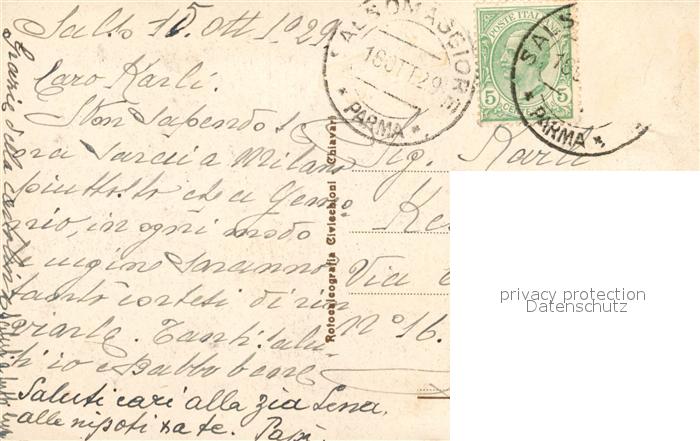 Salso 15 Ott. 1929
Caro Karli.
Non sapendo se
ora sarai a Milano
piuttosto che a
in ogni modo
saranno
tanto cortesi di
Tanti salu-
ti io e Babbo bene
Saluti cari alla zia Lena,
alle nipoti e a te. Papà
Grazie della cartolina
SALSOMAGGIORE
16 OTT. 29
* PARMA *
POSTE ITALIANE
5 CENT 5
SALS
* PARMA *
Rotocalcografia Civicchioni Chiavari
Sig. Karli
Via
No 16.
privacy protection
Datenschutz